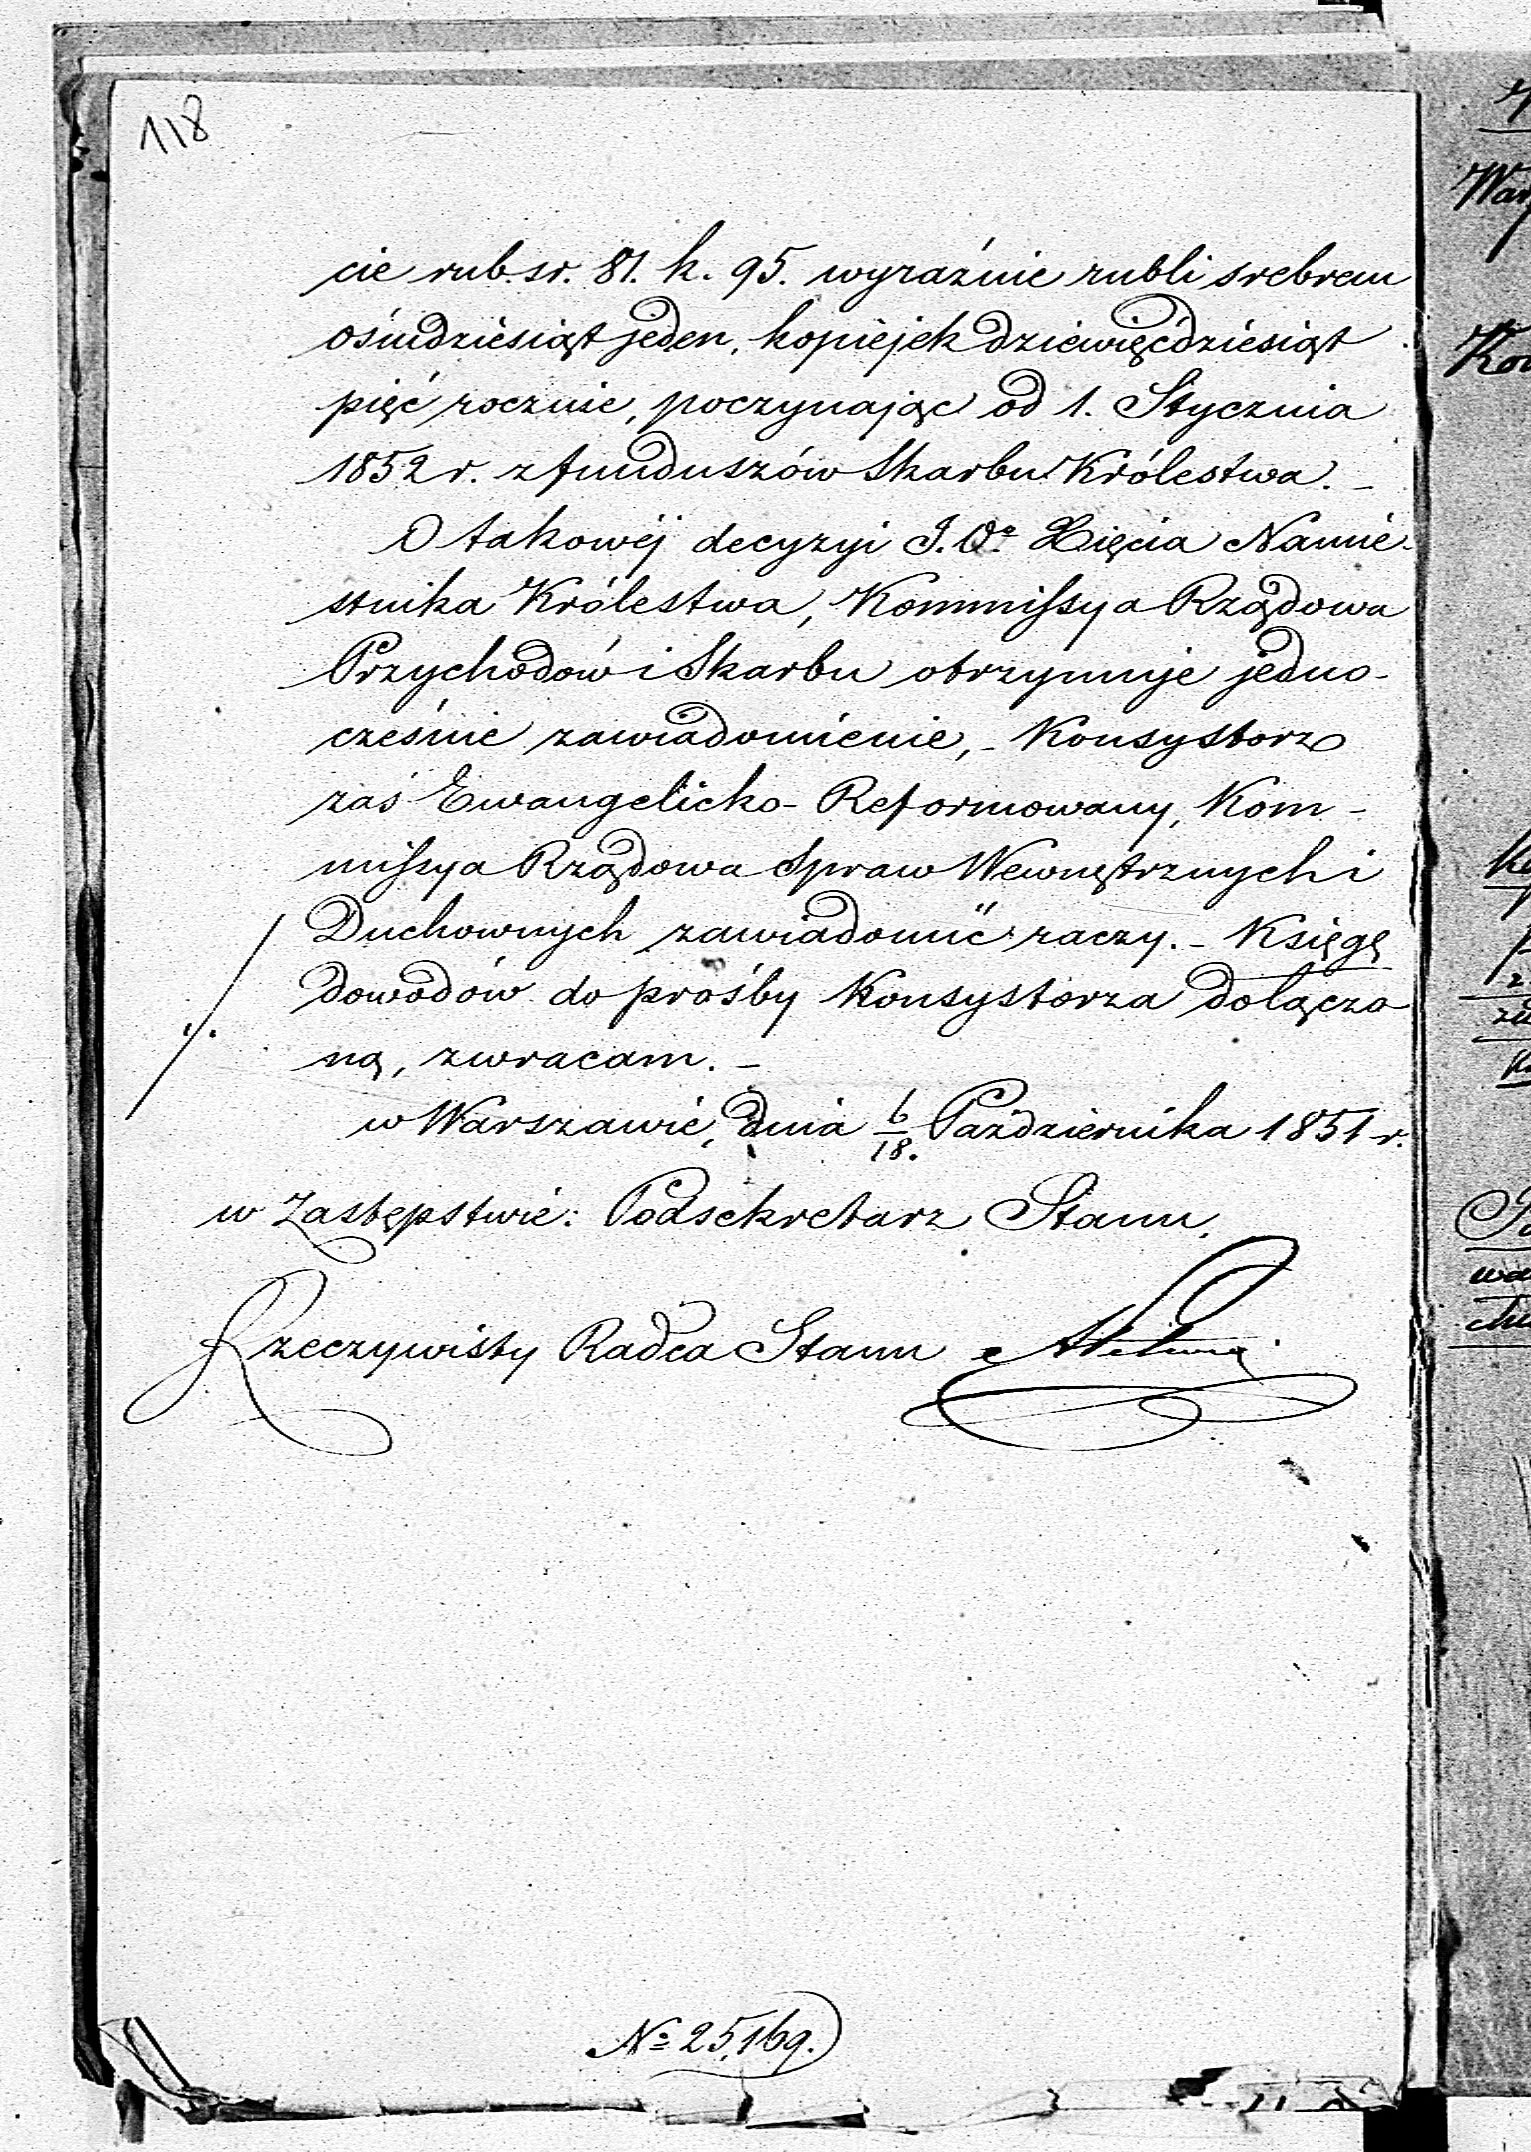 118
cie rub. sr. 81. k. 95. wyraźnie rubli srebrem
ośmdziesiąt jeden, kopiejek dziewięćdziesiąt
pięć rocznie, poczynając od 1. Stycznia
1852 r. z funduszów Skarbu Królestwa. –
O takowéj decyzyi J. O. Xięcia Namie-
stnika Królestwa, Kommissya Rządowa
Przychodów i Skarbu otrzymuje jedno-
cześnie zawiadomienie, – Konsystorz
zaś Ewangelicko-Reformowany, Kom-
missya Rządowa Spraw Wewnętrznych i
Duchownych zawiadomić raczy. – Księgę
dowodów do prośby Konsystorza dołączo
ną, zwracam. –
w Warszawie, dnia 6/18. Października 1851 r.
w Zastępstwie: Podsekretarz Stanu,
Rzeczywisty Radca Stanu
№ 25,169.